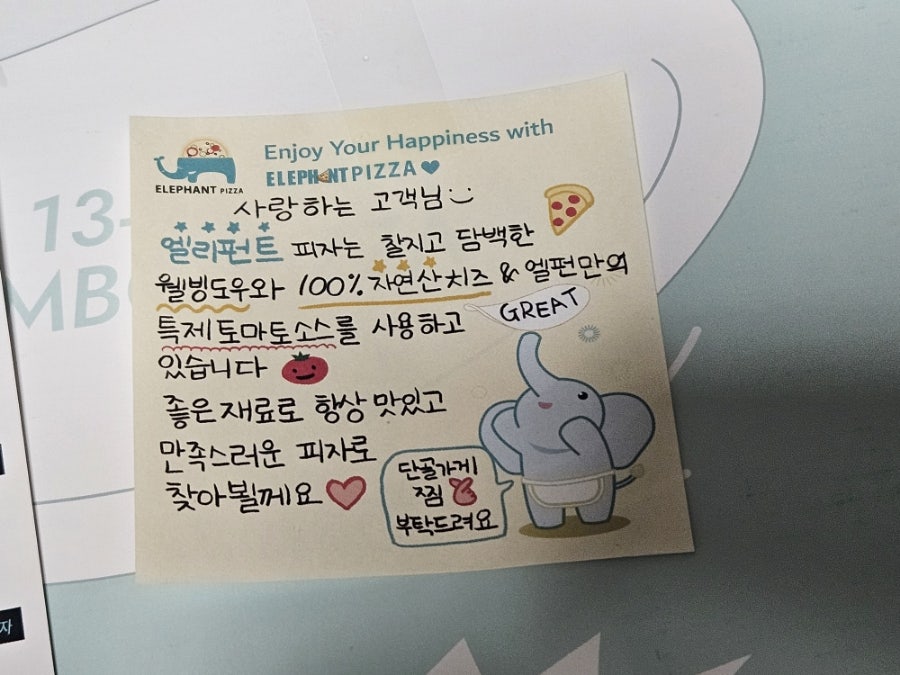 Enjoy Your Happiness with
ELEPHANT PIZZA
ELEPHANT PIZZA
사랑하는 고객님
엘리펀트 피자는 찰지고 담백한
웰빙도우와 100% 자연산치즈 & 엘펀만의
특제토마토소스를 사용하고
있습니다
좋은재료로 항상 맛있고
만족스러운 피자로
찾아뵐께요
GREAT
단골가게
찜
부탁드려요
13-
MB
자